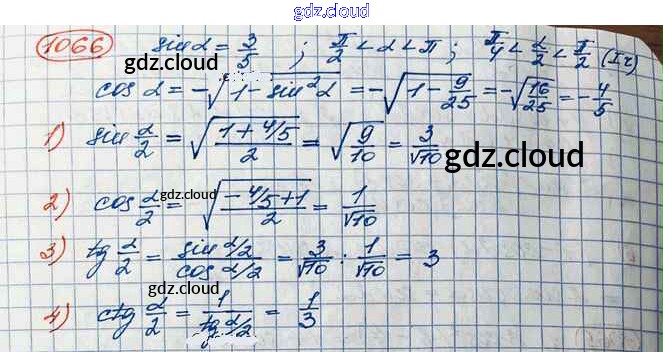 gdz.cloud
1066 sin α = 3/5 ; π/2 < α < π ; π/4 < α/2 < π/2 (I ч)
gdz.cloud
cos α = -√(1 - sin²α) = -√(1 - 9/25) = -√(16/25) = -4/5
1) sin α/2 = √((1 + 4/5)/2) = √(9/10) = 3/√10 gdz.cloud
gdz.cloud
2) cos α/2 = √((-4/5 + 1)/2) = 1/√10
3) tg α/2 = (sin α/2)/(cos α/2) = 3/√10 : 1/√10 = 3
gdz.cloud
4) ctg α/2 = 1/(tg α/2) = 1/3